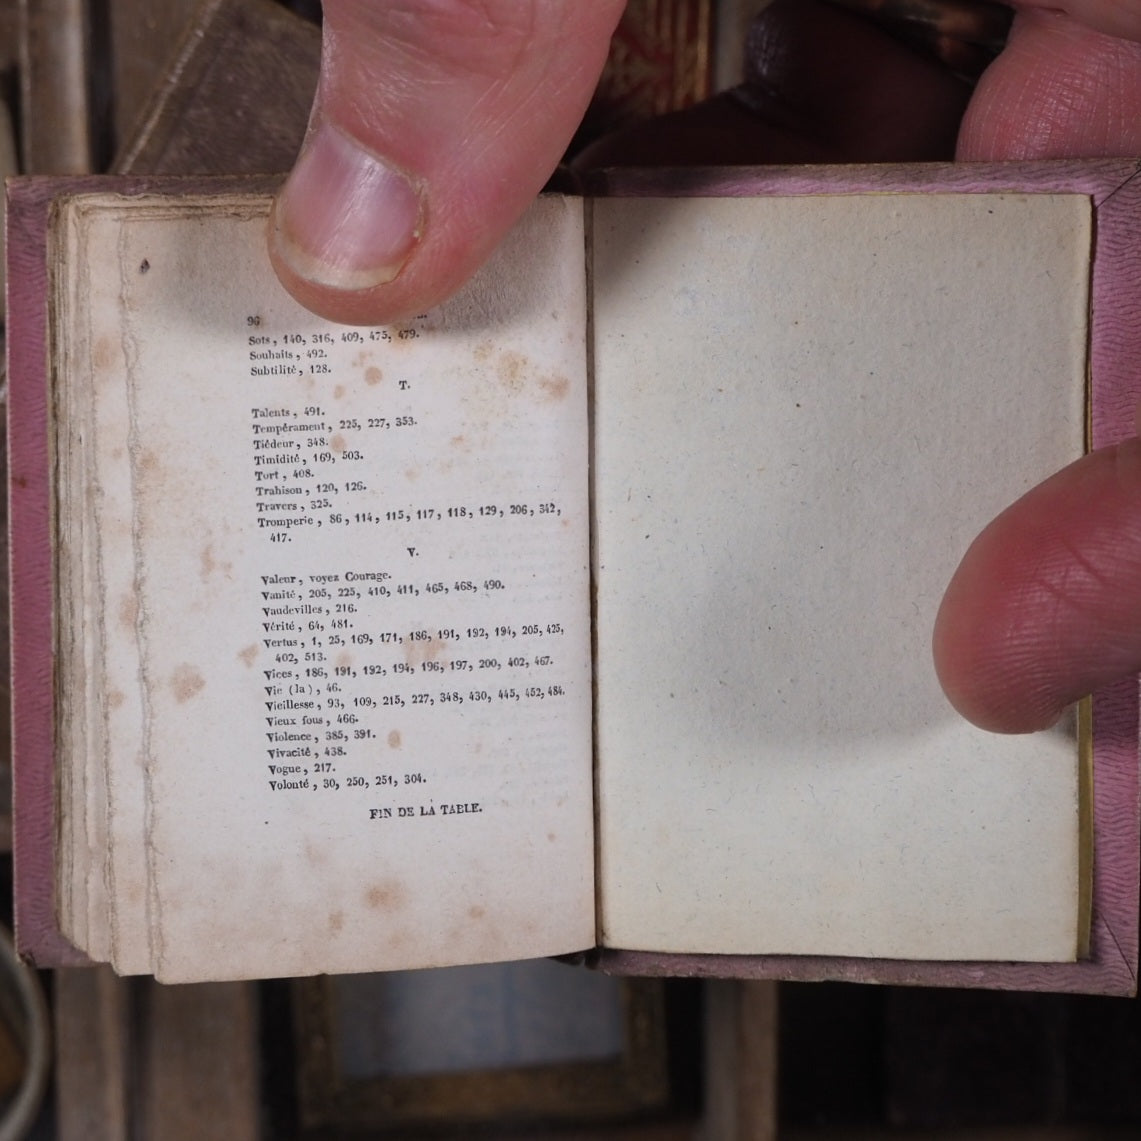 96
Sots, 140, 316, 409, 475, 479.
Souhaits, 492.
Subtilité, 128.
T.
Talents, 491.
Tempérament, 225, 227, 353.
Tiédeur, 348.
Timidité, 169, 503.
Tort, 408.
Trahison, 120, 126.
Travers, 325.
Tromperie, 86, 114, 115, 117, 118, 129, 206, 342,
417.
V.
Valeur, voyez Courage.
Vanité, 205, 225, 410, 411, 465, 468, 490.
Vaudevilles, 216.
Vérité, 64, 481.
Vertus, 1, 25, 169, 171, 186, 191, 192, 194, 205, 425,
402, 513.
Vices, 186, 191, 192, 194, 196, 197, 200, 402, 467.
Vie (la), 46.
Vieillesse, 93, 109, 215, 227, 348, 430, 445, 452, 484.
Vieux fous, 466.
Violence, 385, 391.
Vivacité, 438.
Vogue, 217.
Volonté, 30, 250, 251, 304.
FIN DE LA TABLE.